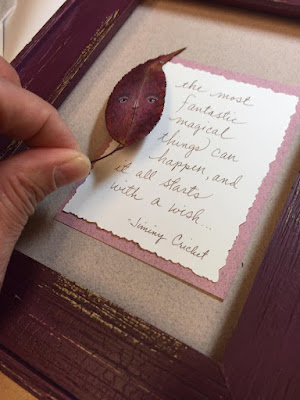 the most
fantastic
magical
things can
happen, and
it all starts
with a wish...
-Jiminy Cricket